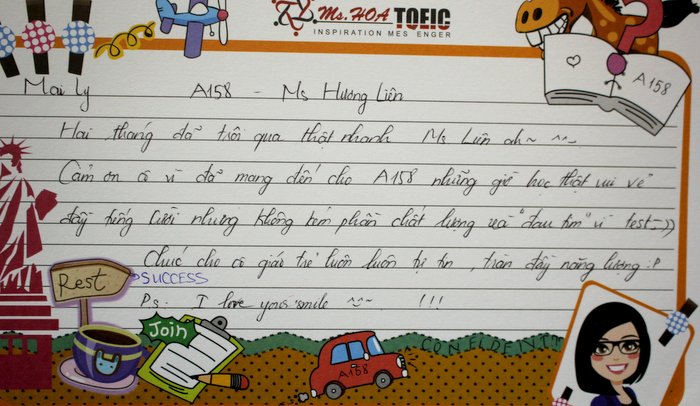 Ms. HOA TOEIC
INSPIRATION MES ENGER
A158
Mai Ly A158 - Ms Hương Liên
Hai tháng đã trôi qua thật nhanh Ms Liên ah~ ^~^
Cảm ơn cô vì đã mang đến cho A158 những giờ học thật vui vẻ
đầy tiếng cười nhưng không kém phần chất lượng và "đau tim" vì test ;))
Chúc cho cô giáo trẻ luôn luôn tự tin, tràn đầy năng lượng :P
Rest
SUCCESS
Ps: I love your smile ^~^ !!!
Join
CONFIDENT
A158